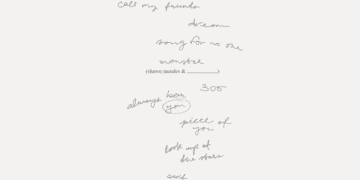 call my friends
dream
song for no one
monster
(shawn mendes & ____________)
305
always been
you
piece of
you
look up at
the stars